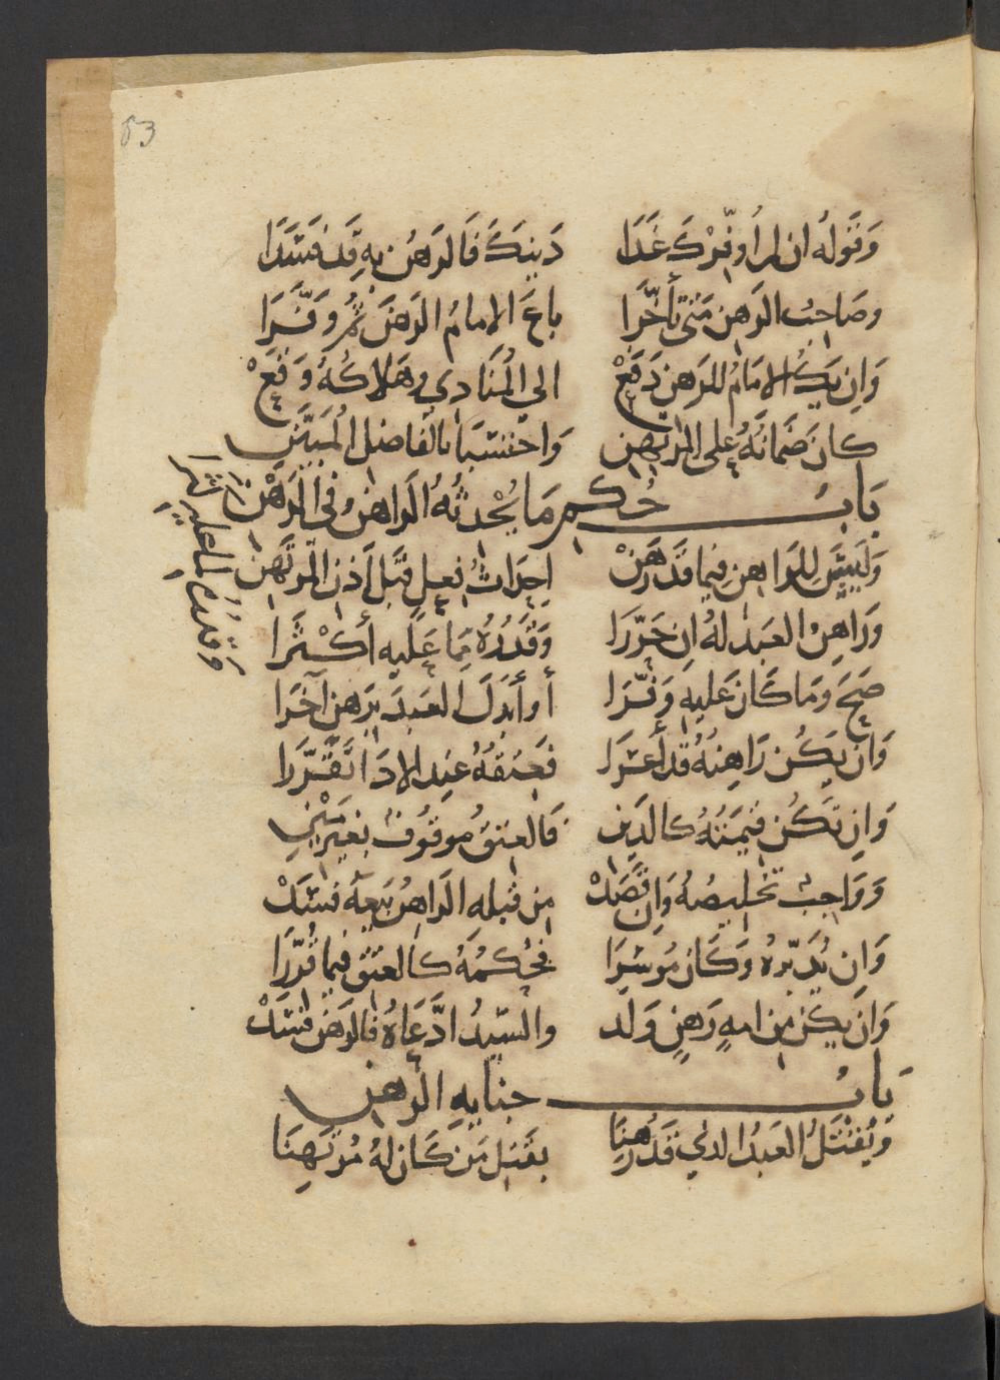 83
وَقَولُهُ ان لم أُوفِّرْكَ غَدَا دَينَكَ فَالرَهْنُ بِهِ قَد فَسَدَا
وصَاحِبُ الرَهنِ مَتى تأخَّرَا باعَ الامامُ الرَهنَ ثُمَّ وَفَّرَا
وَان يَكُ الامَامُ للرَهنِ دَفَعْ الي المُنَادِي وهَلاكُهُ وَقَعْ
كانَ ضَمَانُهُ على المرتَهِنِ وَاحتسَبَا بالفَاضلِ المُبَيَّنِ
بَابُ حُكمِ مَا يُحْدِثُهُ الرَاهنُ في الرَهْنِ
وَلَيسَ لِلرَاهِنِ فِيمَا قَد رَهَنْ اِحدَاثُ فِعلٍ قَبلَ اذنِ المرتَهِنْ
وَرَاهِنُ العَبدِ لهُ ان حَرَّرَا وَقَدرُهُ مِمَا عَلَيهِ أكْثَرَا
صَحَ وَمَا كَانَ عَلَيهِ وَفَّرَا أو أبدَلَ العَبدَ بِرَهنٍ آخَرَا
وَان يَكُن رَاهِنُهُ قَد أعسَرَا فَعِتقُهُ عِندَ الادَا تَقَرَّرَا
وَان تَكُن قِيمَتُهُ كالدَينِ فَالعِتقُ مَوقُوفٌ بِغَيرِ مَيْنِ
وَوَاجِبٌ تخليصُهُ وَان قَصَدْ مِن قَبلِهِ الرَاهِنُ بَيعَهُ فَسَدْ
وَان يُدَبِّرهُ وَكَانَ مُوسِرَا فَحُكمُهُ كالعِتقِ فِيمَا قُرِّرَا
وَان يَكن مِن امةِ رَهنٍ وَلَد والسَيّدُ ادَّعَاهُ فَالرَهنُ فَسَدْ
بَابُ جِنَايةِ الرَهنِ
وَيُقتَلُ العَبدُ الذي قَد رُهِنَا بِقَتلِ مَن كَانَ لهُ مُرتَهِنَا